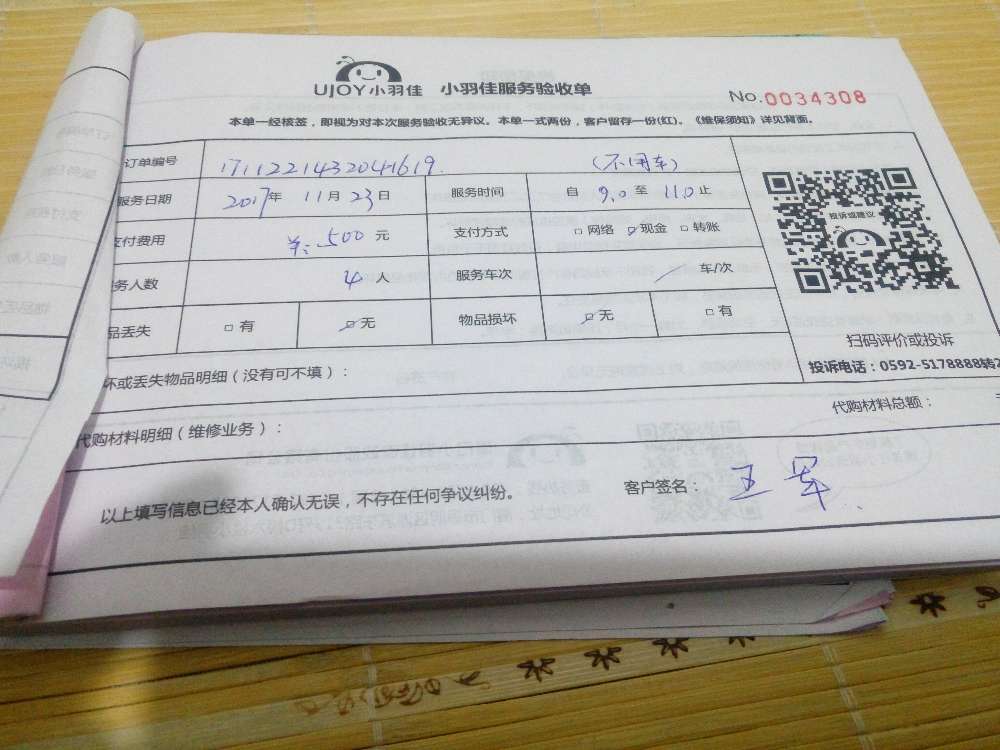 UJOY小羽佳 小羽佳服务验收单
No.0034308
本单一经核签，即视为对本次服务验收无异议。本单一式两份，客户留存一份(红)。《维保须知》详见背面。
订单编号 1711221432041619. (不用车)
服务日期 2017年 11月23日 服务时间 自 9.0 至 11.0 止
支付费用 羊:.500 元 支付方式 □网络 ☑现金 □转账
务人数 4 人 服务车次 / 车/次
品丢失 □有 ☑无 物品损坏 ☑无 □有
投诉或建议
扫码评价或投诉
投诉电话：0592-5178888转2
坏或丢失物品明细（没有可不填）：
代购材料明细（维修业务）： 代购材料总额：
以上填写信息已经本人确认无误，不存在任何争议纠纷。 客户签名： 王军